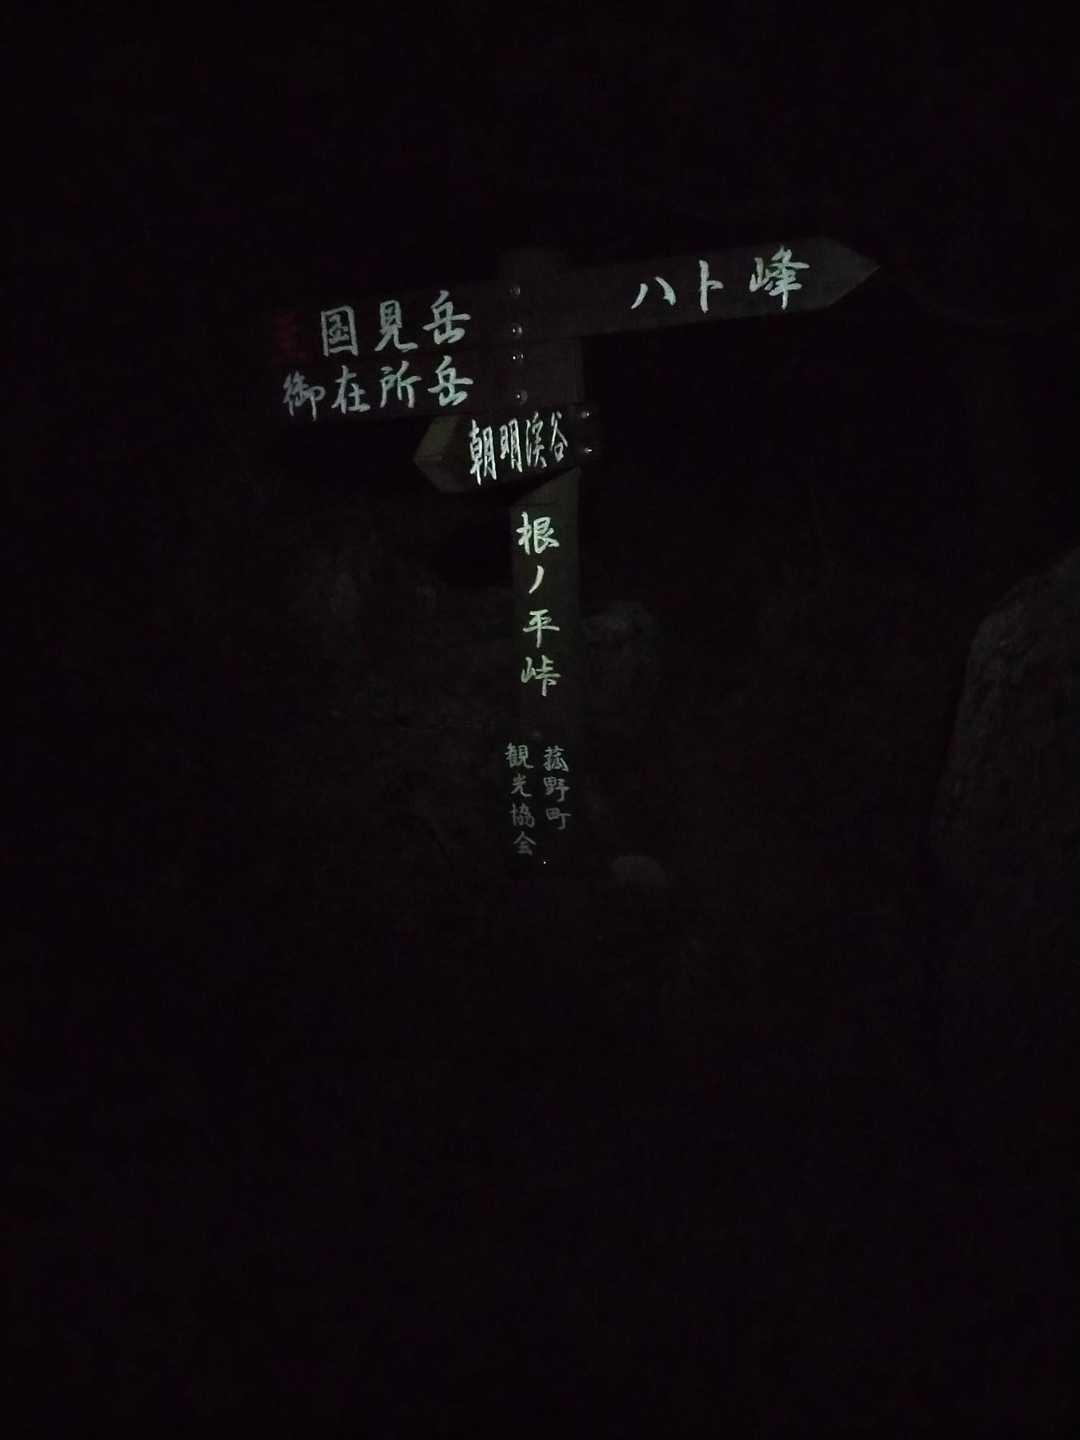 ハト峰
至
国見岳
御在所岳
朝明渓谷
根ノ平峠
菰野町
観光協会